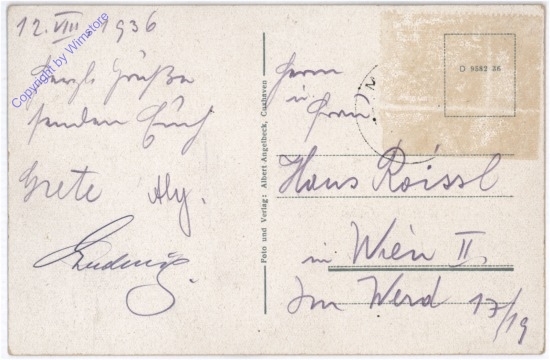 12. VIII. 1936
Herzl. Grüße
senden Euch
Grete Aly.
Ludwig.
Copyright by Wimstore
Foto und Verlag: Albert Angelbeck, Cuxhaven
O 9582 36
Herrn
u
Frau
Hans Roissl
in Wien II
Im Werd 17/19